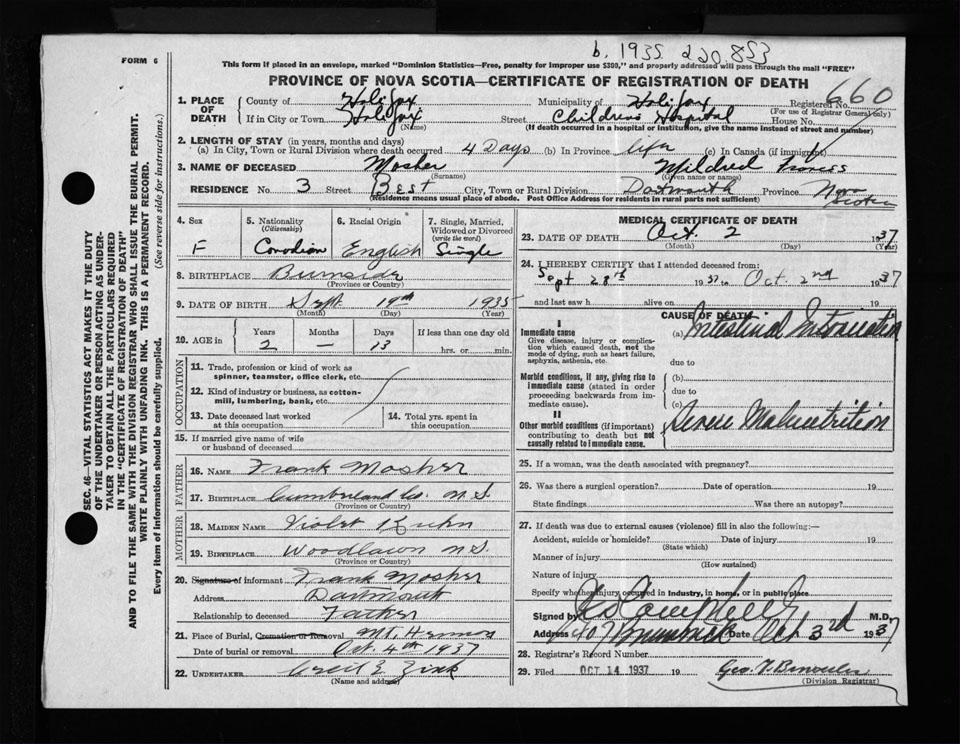 b. 1935 220,853
FORM 6
This form if placed in an envelope, marked "Dominion Statistics—Free, penalty for improper use $300," and properly addressed will pass through the mail "FREE"
PROVINCE OF NOVA SCOTIA—CERTIFICATE OF REGISTRATION OF DEATH
660
1. PLACE OF DEATH
County of Halifax Municipality of Halifax Registered No.
(For use of Registrar General only)
If in City or Town Halifax Street Childrens Hospital House No.
(Name) (If death occurred in a hospital or institution, give the name instead of street and number)
2. LENGTH OF STAY (in years, months and days)
(a) In City, Town or Rural Division where death occurred 4 Days (b) In Province Life (c) In Canada (if immigrant)
3. NAME OF DECEASED Mosher Mildred Frances
(Surname) (Given name or names)
RESIDENCE No. 3 Street Best City, Town or Rural Division Dartmouth Province Nova Scotia
(Residence means usual place of abode. Post Office Address for residents in rural parts not sufficient)
SEC. 46—VITAL STATISTICS ACT MAKES IT THE DUTY
OF THE UNDERTAKER OR PERSON ACTING AS UNDER-
TAKER TO OBTAIN ALL THE PARTICULARS REQUIRED
IN THE "CERTIFICATE OF REGISTRATION OF DEATH"
AND TO FILE THE SAME WITH THE DIVISION REGISTRAR WHO SHALL ISSUE THE BURIAL PERMIT.
WRITE PLAINLY WITH UNFADING INK. THIS IS A PERMANENT RECORD.
Every item of information should be carefully supplied. (See reverse side for instructions.)
4. Sex 5. Nationality (Citizenship) 6. Racial Origin 7. Single, Married, Widowed or Divorced (write the word)
F Canadian English Single
8. BIRTHPLACE Burnside
(Province or Country)
9. DATE OF BIRTH Sept. 19th 1935
(Month) (Day) (Year)
10. AGE in Years Months Days If less than one day old
2 — 13 hrs. or min.
OCCUPATION
11. Trade, profession or kind of work as spinner, teamster, office clerk, etc.
12. Kind of industry or business, as cotton-mill, lumbering, bank, etc.
13. Date deceased last worked at this occupation
14. Total yrs. spent in this occupation
15. If married give name of wife or husband of deceased
FATHER
16. NAME Frank Mosher
17. BIRTHPLACE Cumberland Co. N.S.
(Province or Country)
MOTHER
18. MAIDEN NAME Violet Kuhn
19. BIRTHPLACE Woodlawn N S.
(Province or Country)
20. Signature of informant Frank Mosher
Address Dartmouth
Relationship to deceased Father
21. Place of Burial, Cremation or Removal Mt. Hermon
Date of burial or removal Oct. 4th 1937
22. UNDERTAKER Cecil E. Zink
(Name and address)
MEDICAL CERTIFICATE OF DEATH
23. DATE OF DEATH Oct. 2 1937
(Month) (Day) (Year)
24. I HEREBY CERTIFY that I attended deceased from:
Sept 28th 1937 to Oct. 2nd 1937
and last saw h alive on 19
CAUSE OF DEATH
I
Immediate cause (a) Intestinal Intoxication
Give disease, injury or complication which caused death, not the mode of dying, such as heart failure, asphyxia, asthenia, etc.
due to
Morbid conditions, if any, giving rise to immediate cause (stated in order proceeding backwards from immediate cause).
(b)
due to
(c)
II
Other morbid conditions (if important) contributing to death but not causally related to immediate cause.
Severe Malnutrition
25. If a woman, was the death associated with pregnancy?
26. Was there a surgical operation? Date of operation 19
State findings Was there an autopsy?
27. If death was due to external causes (violence) fill in also the following:—
Accident, suicide or homicide? Date of injury 19
(State which)
Manner of injury
(How sustained)
Nature of injury
Specify whether injury occurred in Industry, in home, or in public place
Signed by Campbell M.D.
Address Date Oct 3rd 1937
28. Registrar's Record Number
29. Filed OCT 14 1937 19
(Division Registrar)